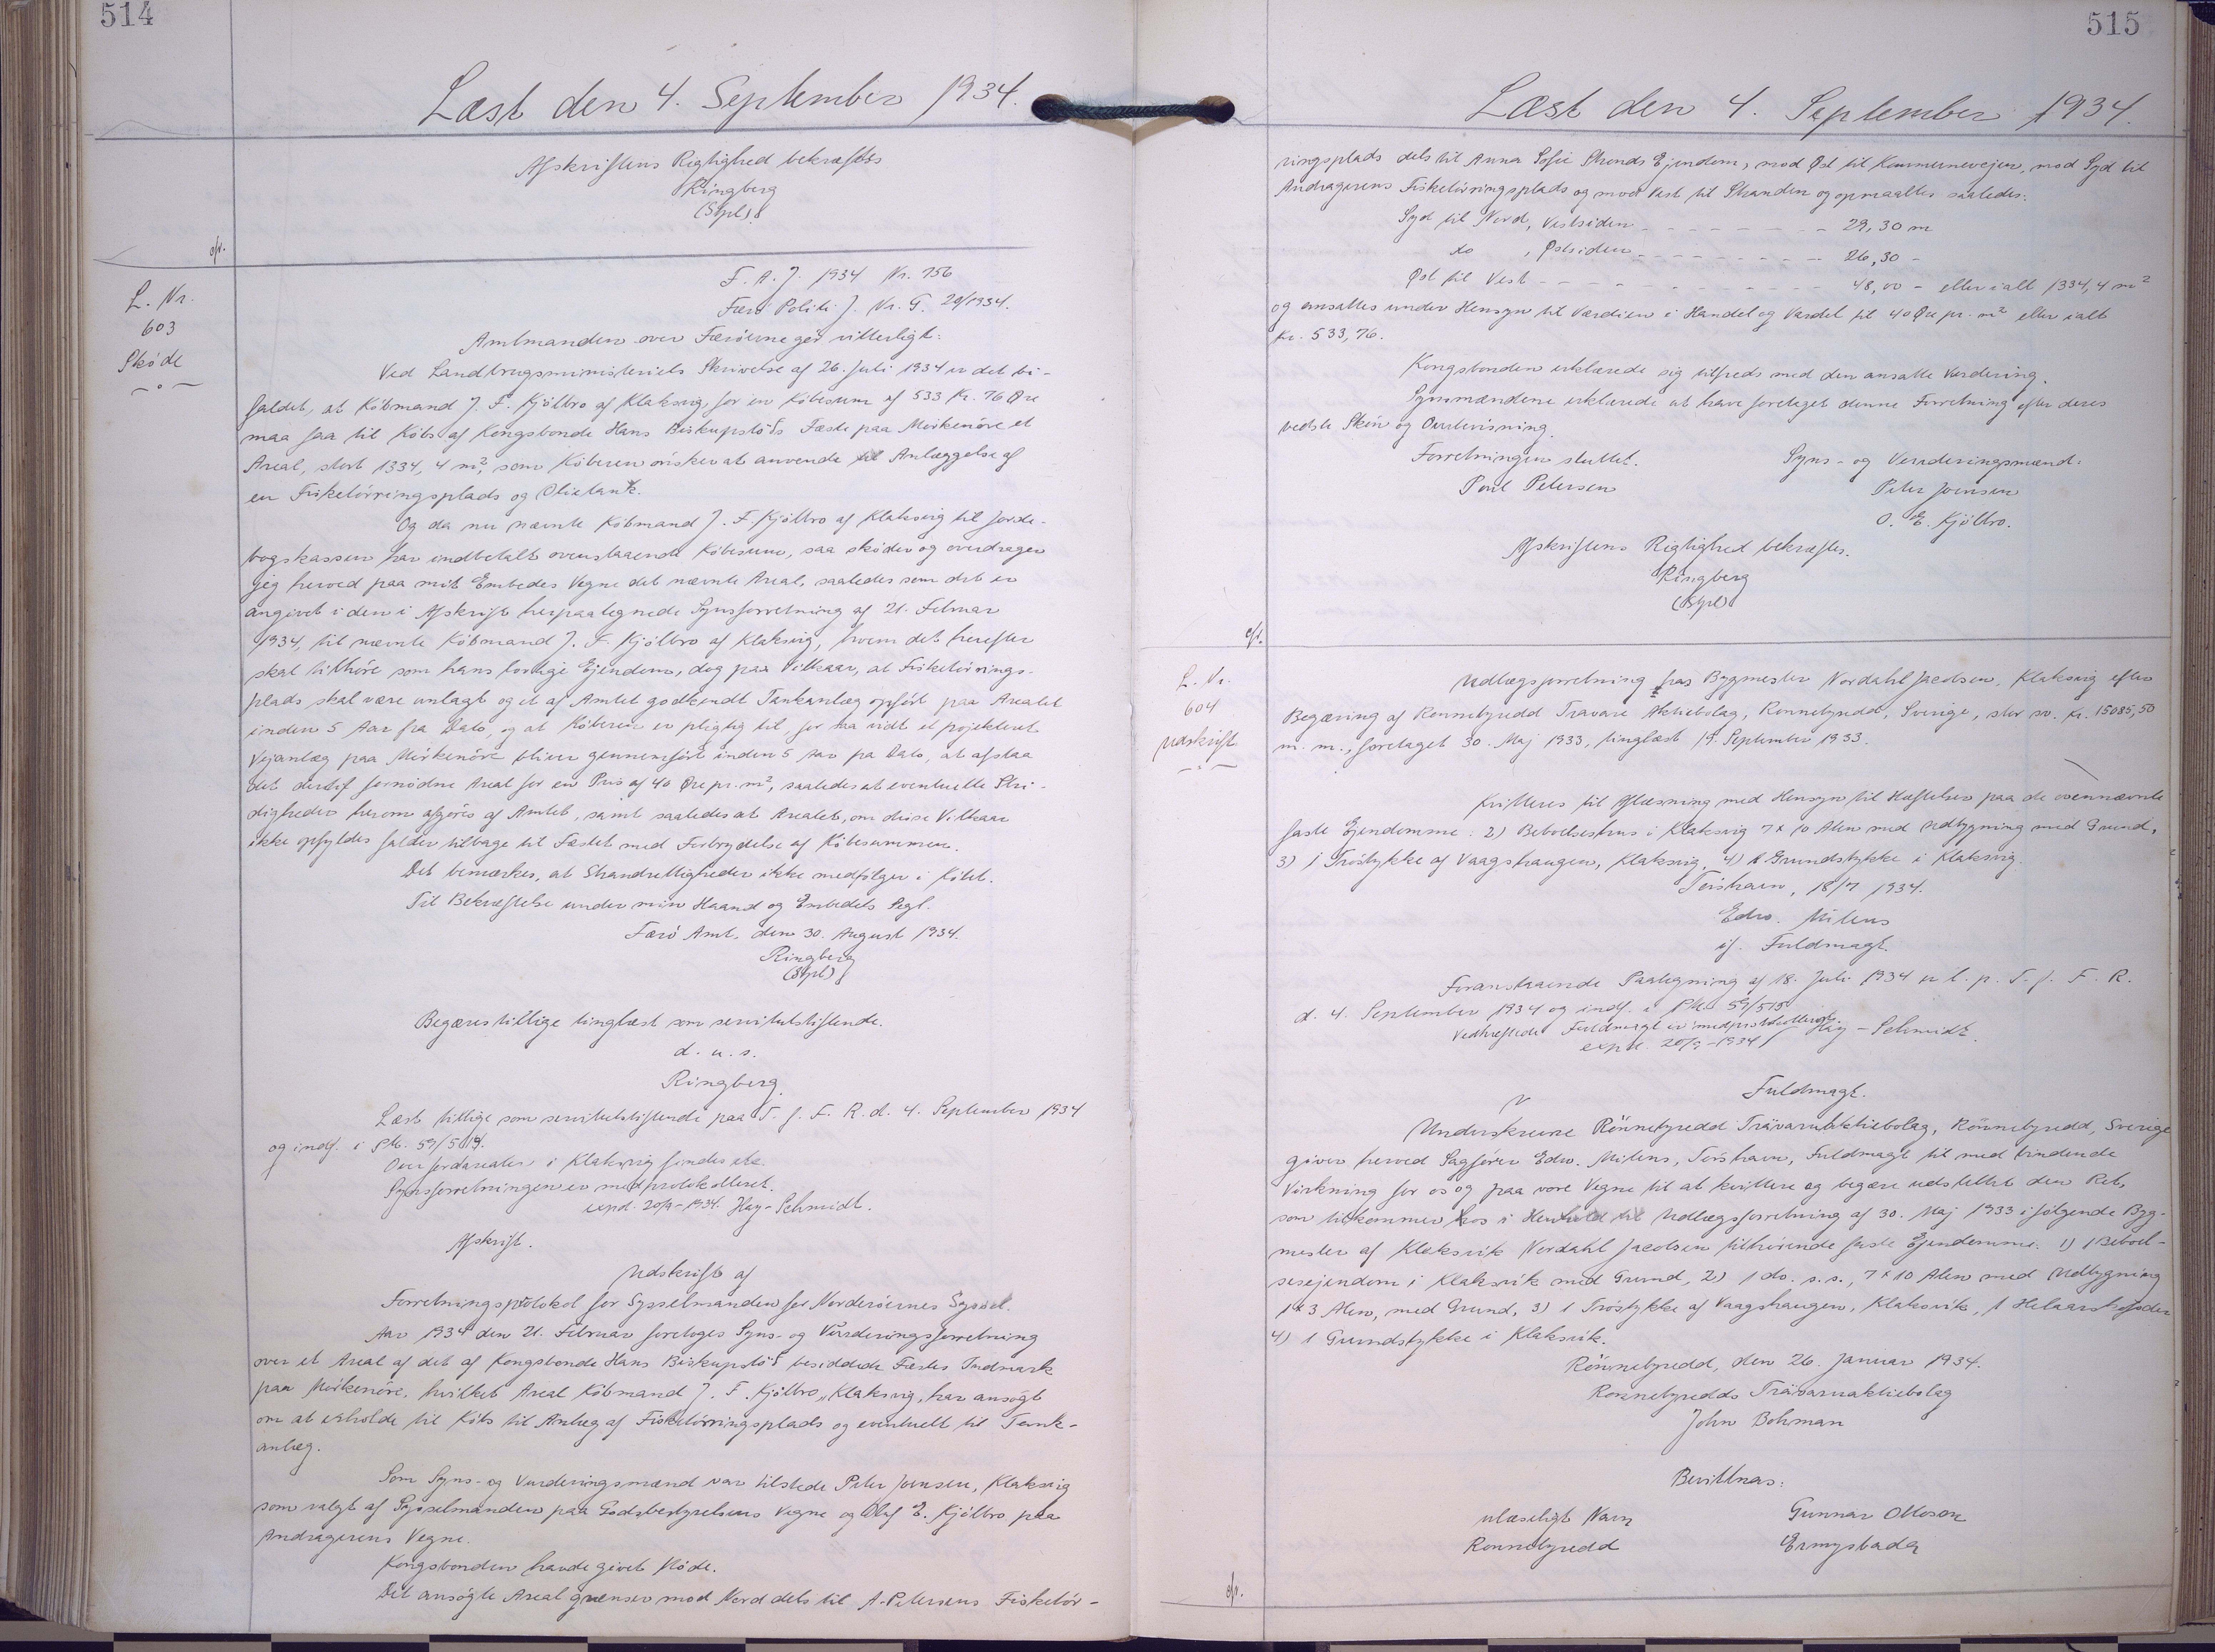 514
Læst den 4. September 1934.
Afskriftens Rigtighed bekræftes
Ringberg
(Sgl)
ofr.
L. Nr.
603
Skøde
F. A. J. 1934 Nr. 756
Færø Politi J. Nr. G. 20/1934.
Amtmanden over Færøerne gør vitterligt:
Ved Landbrugsministeriets Skrivelse af 26. Juli 1934 er det bi-
faldet, at Købmand J. F. Kjølbro af Klaksvig, for en Købesum af 533 Kr. 76 Øre
maa faa til Købs af Kongsbonde Hans Biskupstøðs Fæste paa Mirkenøre et
Areal, stort 1334,4 m², som Køberen ønsker at anvende til Anlæggelse af
en Fisketørringsplads og Olietank.
Og da nu nævnte Købmand J. F. Kjølbro af Klaksvig til Jorde-
bogskassen har indbetalt ovenstaaende Købesum, saa skøder og overdrager
jeg herved paa mit Embedes Vegne det nævnte Areal, saaledes som det er
angivet i den i Afskrift herpaategnede Synsforretning af 21. Februar
1934, til nævnte Købmand J. F. Kjølbro af Klaksvig, hvem det herefter
skal tilhøre som hans lovlige Ejendom, dog paa Vilkaar, at Fisketørrings-
plads skal være anlagt og et af Amtet godkendt Tankanlæg opført paa Arealet
inden 5 Aar fra Dato, og at Køberen er pligtig til, for saa vidt et projekteret
Vejanlæg paa Mirkenøre bliver gennemført inden 5 Aar fra Dato, at afstaa
det dertil fornødne Areal for en Pris af 40 Øre pr. m², saaledes at eventuelle Stri-
digheder herom afgøres af Amtet, samt saaledes at Arealet, om disse Vilkaar
ikke opfyldes falder tilbage til Fæstet med Forbrydelse af Købesummen.
Det bemærkes, at Strandrettigheder ikke medfølger i Købet.
Til Bekræftelse under min Haand og Embedets Segl.
Færø Amt, den 30. August 1934.
Ringberg
(Sgl)
Begæres tillige tinglæst som servitutstiftende.
d. u. s.
Ringberg.
Læst tillige som servitutstiftende paa T. f. F. R. d. 4. September 1934
og indf. i Ptk. 59/514.
Over Jordarealer i Klaksvig findes
Synsforretningen er medprotokolleret.
expd. 20/9-1934. Hay-Schmidt.
Afskrift.
Udskrift af
Forretningsprotokol for Sysselmanden for Norderøernes Syssel.
Aar 1934 den 21. Februar foretoges Syns- og Vurderingsforretning
over et Areal af det af Kongsbonde Hans Biskupstøð besiddede Fæstes Indmark
paa Mirkenøre, hvilket Areal Købmand J. F. Kjølbro, Klaksvig, har ansøgt
om at erholde til Købs til Anlæg af Fisketørringsplads og eventuelt til Tank-
anlæg.
Som Syns- og Vurderingsmænd var tilstede Peter Joensen, Klaksvig
som valgt af Sysselmanden paa Godsbestyrelsens Vegne og Olaf E. Kjølbro paa
Andragerens Vegne.
Kongsbonden havde givet Møde.
Det ansøgte Areal grænser mod Nord dels til A. Petersens Fisketør-
515
Læst den 4. September 1934.
ringsplads dels til Anna Sofie Strends Ejendom, mod Øst til Kommunevejen, mod Syd til
Andragerens Fisketørringsplads og mod Vest til Stranden og opmaaltes saaledes:
Syd til Nord, Vestsiden - - - - - - - 29,30 m
do , Østsiden - - - - - - - 26,30 -
Øst til Vest - - - - - - - 48,00 - eller ialt 1334,4 m²
og ansattes under Hensyn til Værdien i Handel og Vandel til 40 Øre pr. m² eller ialt
Kr. 533,76.
Kongsbonden erklærede sig tilfreds med den ansatte Vurdering.
Synsmændene erklærede at have foretaget denne Forretning efter deres
bedste Skøn og Overbevisning.
Forretningen sluttet.
Syns- og Vurderingsmænd:
Poul Petersen
Peter Joensen
O. E. Kjølbro.
Afskriftens Rigtighed bekræftes.
Ringberg
(Sgl)
ofr.
L. Nr.
604
Udskrift
Udlægsforretning hos Bygmester Nordahl Jacobsen, Klaksvig efter
Begæring af Ronnebyredd Travare Aktiebolag, Ronnebyredd, Sverige, stor sv. Kr. 15085,50
m. m., foretaget 30. Maj 1933, tinglæst 19. September 1933.
Kvitteres til Aflæsning med Hensyn til Hæftelser paa de ovennævnte
faste Ejendomme: 2) Beboelseshus i Klaksvig 7 x 10 Alen med Udbygning med Grund,
3) 1 Trøstykke af Vaagshaugen, Klaksvig, 4) 1 Grundstykke i Klaksvig.
Tórshavn, 18/7 1934.
Edw. Mitens
if. Fuldmagt.
Foranstaaende Paategning af 18. Juli 1934 er l. p. T. f. F. R.
d. 4. September 1934 og indf. i Ptk. 59/515
Vedhæftede Fuldmagt er medprotokolleret. Hay-Schmidt.
expd. 20/9-1934
Fuldmagt.
Underskrevne Rönnebyredd Trävaruaktiebolag, Rönnebyredd, Sverige
giver herved Sagfører Edw. Mitens, Tórshavn, Fuldmagt til med bindende
Virkning for os og paa vore Vegne til at kvittere og begære udslettet den Ret,
som tilkommer os i Henhold til Udlægsforretning af 30. Maj 1933 i følgende Byg-
mester af Klaksvik Nordahl Jacobsen tilhørende faste Ejendomme: 1) 1 Beboel-
sesejendom i Klaksvik med Grund, 2) 1 do. s. s., 7 x 10 Alen med Udbygning
1 x 3 Alen, med Grund, 3) 1 Trøstykke af Vaagshaugen, Klaksvik, 1 Helaarskofoder
4) 1 Grundstykke i Klaksvik.
Rönnebyredd, den 26. Januar 1934.
Ronnebyredds Trävaruaktiebolag
John Bohman
Bevittnas:
ulæseligt Navn
Gunnar Ottoson
Ronnebyredd
Ermystada
ofr.